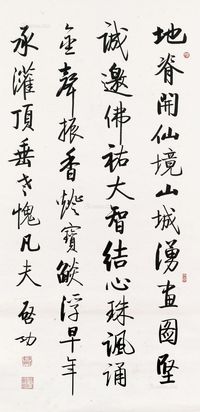 地脊開仙境山城湧畫圖堅
誠邀佛祐大智結心珠諷誦
金聲振香燈寶餤浮早年
承灌頂垂老愧凡夫 啓功